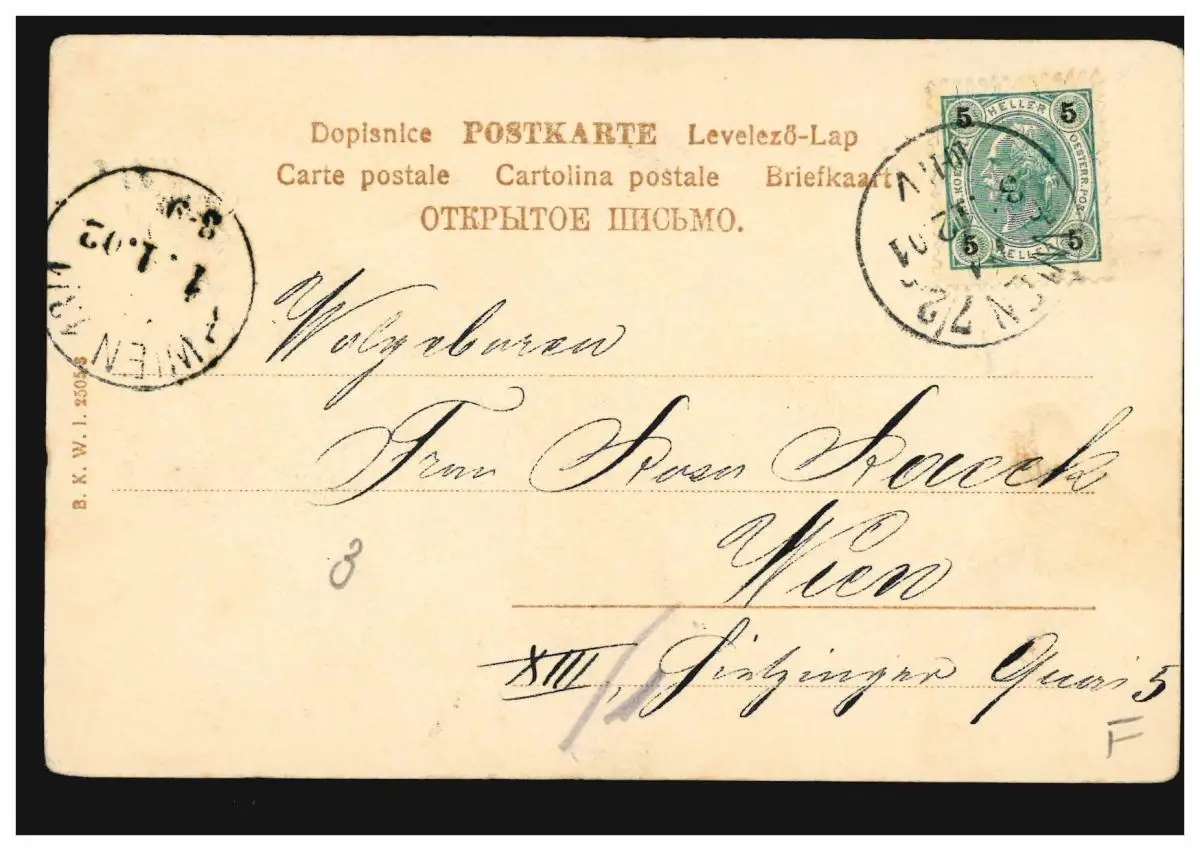 Dopisnice POSTKARTE Levelező-Lap
Carte postale Cartolina postale Briefkaart
ОТКРЫТОЕ ПИСЬМО.
5 HELLER 5
5 HELLER 5
WIEN 7/2
8. 12 01
WIEN
1.1.02
8-9
B. K. W. I. 2505/8
Wolgeboren
Frau Rosa
Wien
XIII, Hietzinger Quai 5
3
F